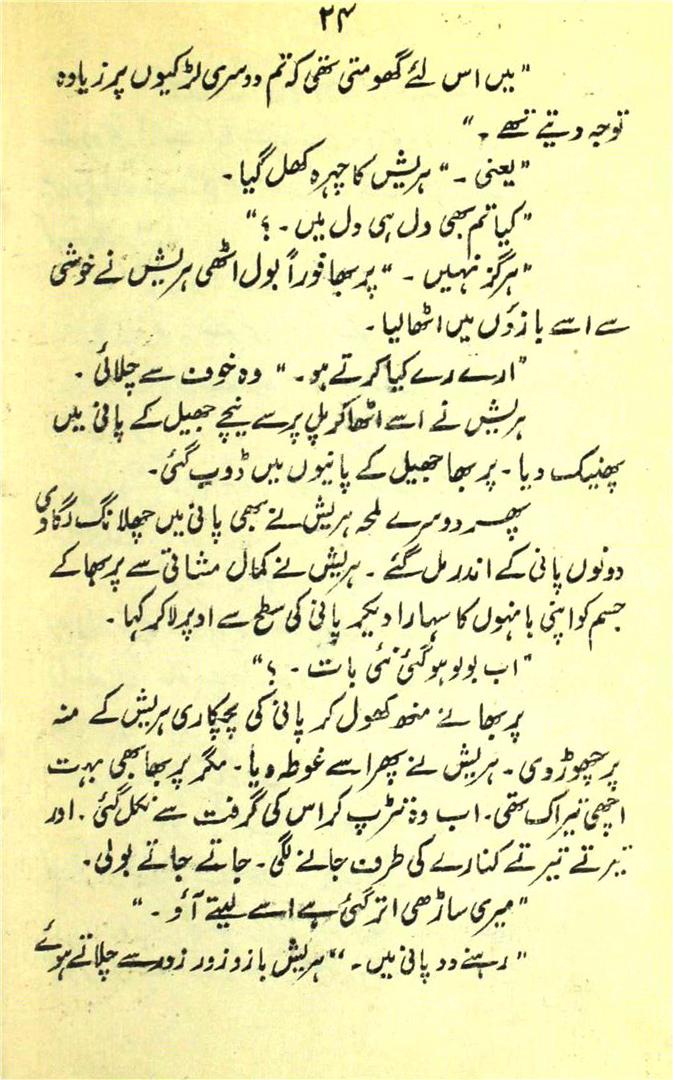 ۲۴
"میں اس لئے گھومتی تھی کہ تم دوسری لڑکیوں پر زیادہ
توجہ دیتے تھے ۔"
"یعنی ۔" ہریش کا چہرہ کھل گیا ۔
"کیا تم بھی دل ہی دل میں ۔ ؟"
"ہرگز نہیں ۔ " پربھا فوراً بول اٹھی ہریش نے خوشی
سے اسے بازوؤں میں اٹھا لیا ۔
"ارے رے کیا کرتے ہو ۔" وہ خوف سے چلائی ۔
ہریش نے اسے اٹھا کر پل پر سے نیچے جھیل کے پانی میں
پھینک دیا ۔ پربھا جھیل کے پانیوں میں ڈوب گئی ۔
پھر دوسرے لمحہ ہریش نے بھی پانی میں چھلانگ لگا دی
دونوں پانی کے اندر مل گئے ۔ ہریش نے کمال مشاقی سے پربھا کے
جسم کو اپنی بانہوں کا سہارا دیکر پانی کی سطح سے اوپر لا کر کہا ۔
"اب بولو ہو گئی نئی بات ۔ ؟"
پربھا نے منھ کھول کر پانی کی پچکاری ہریش کے منہ
پر چھوڑ دی ۔ ہریش نے پھر اسے غوطہ دیا ۔ مگر پربھا بھی بہت
اچھی تیراک تھی ۔ اب وہ تڑپ کر اس کی گرفت سے نکل گئی ۔ اور
تیرتے تیرتے کنارے کی طرف جانے لگی ۔ جاتے جاتے بولی ۔
"میری ساڑھی اتر گئی ہے اسے لیتے آؤ ۔ "
"رہنے دو پانی میں ۔ " ہریش بازو زور زور سے چلاتے ہوئے